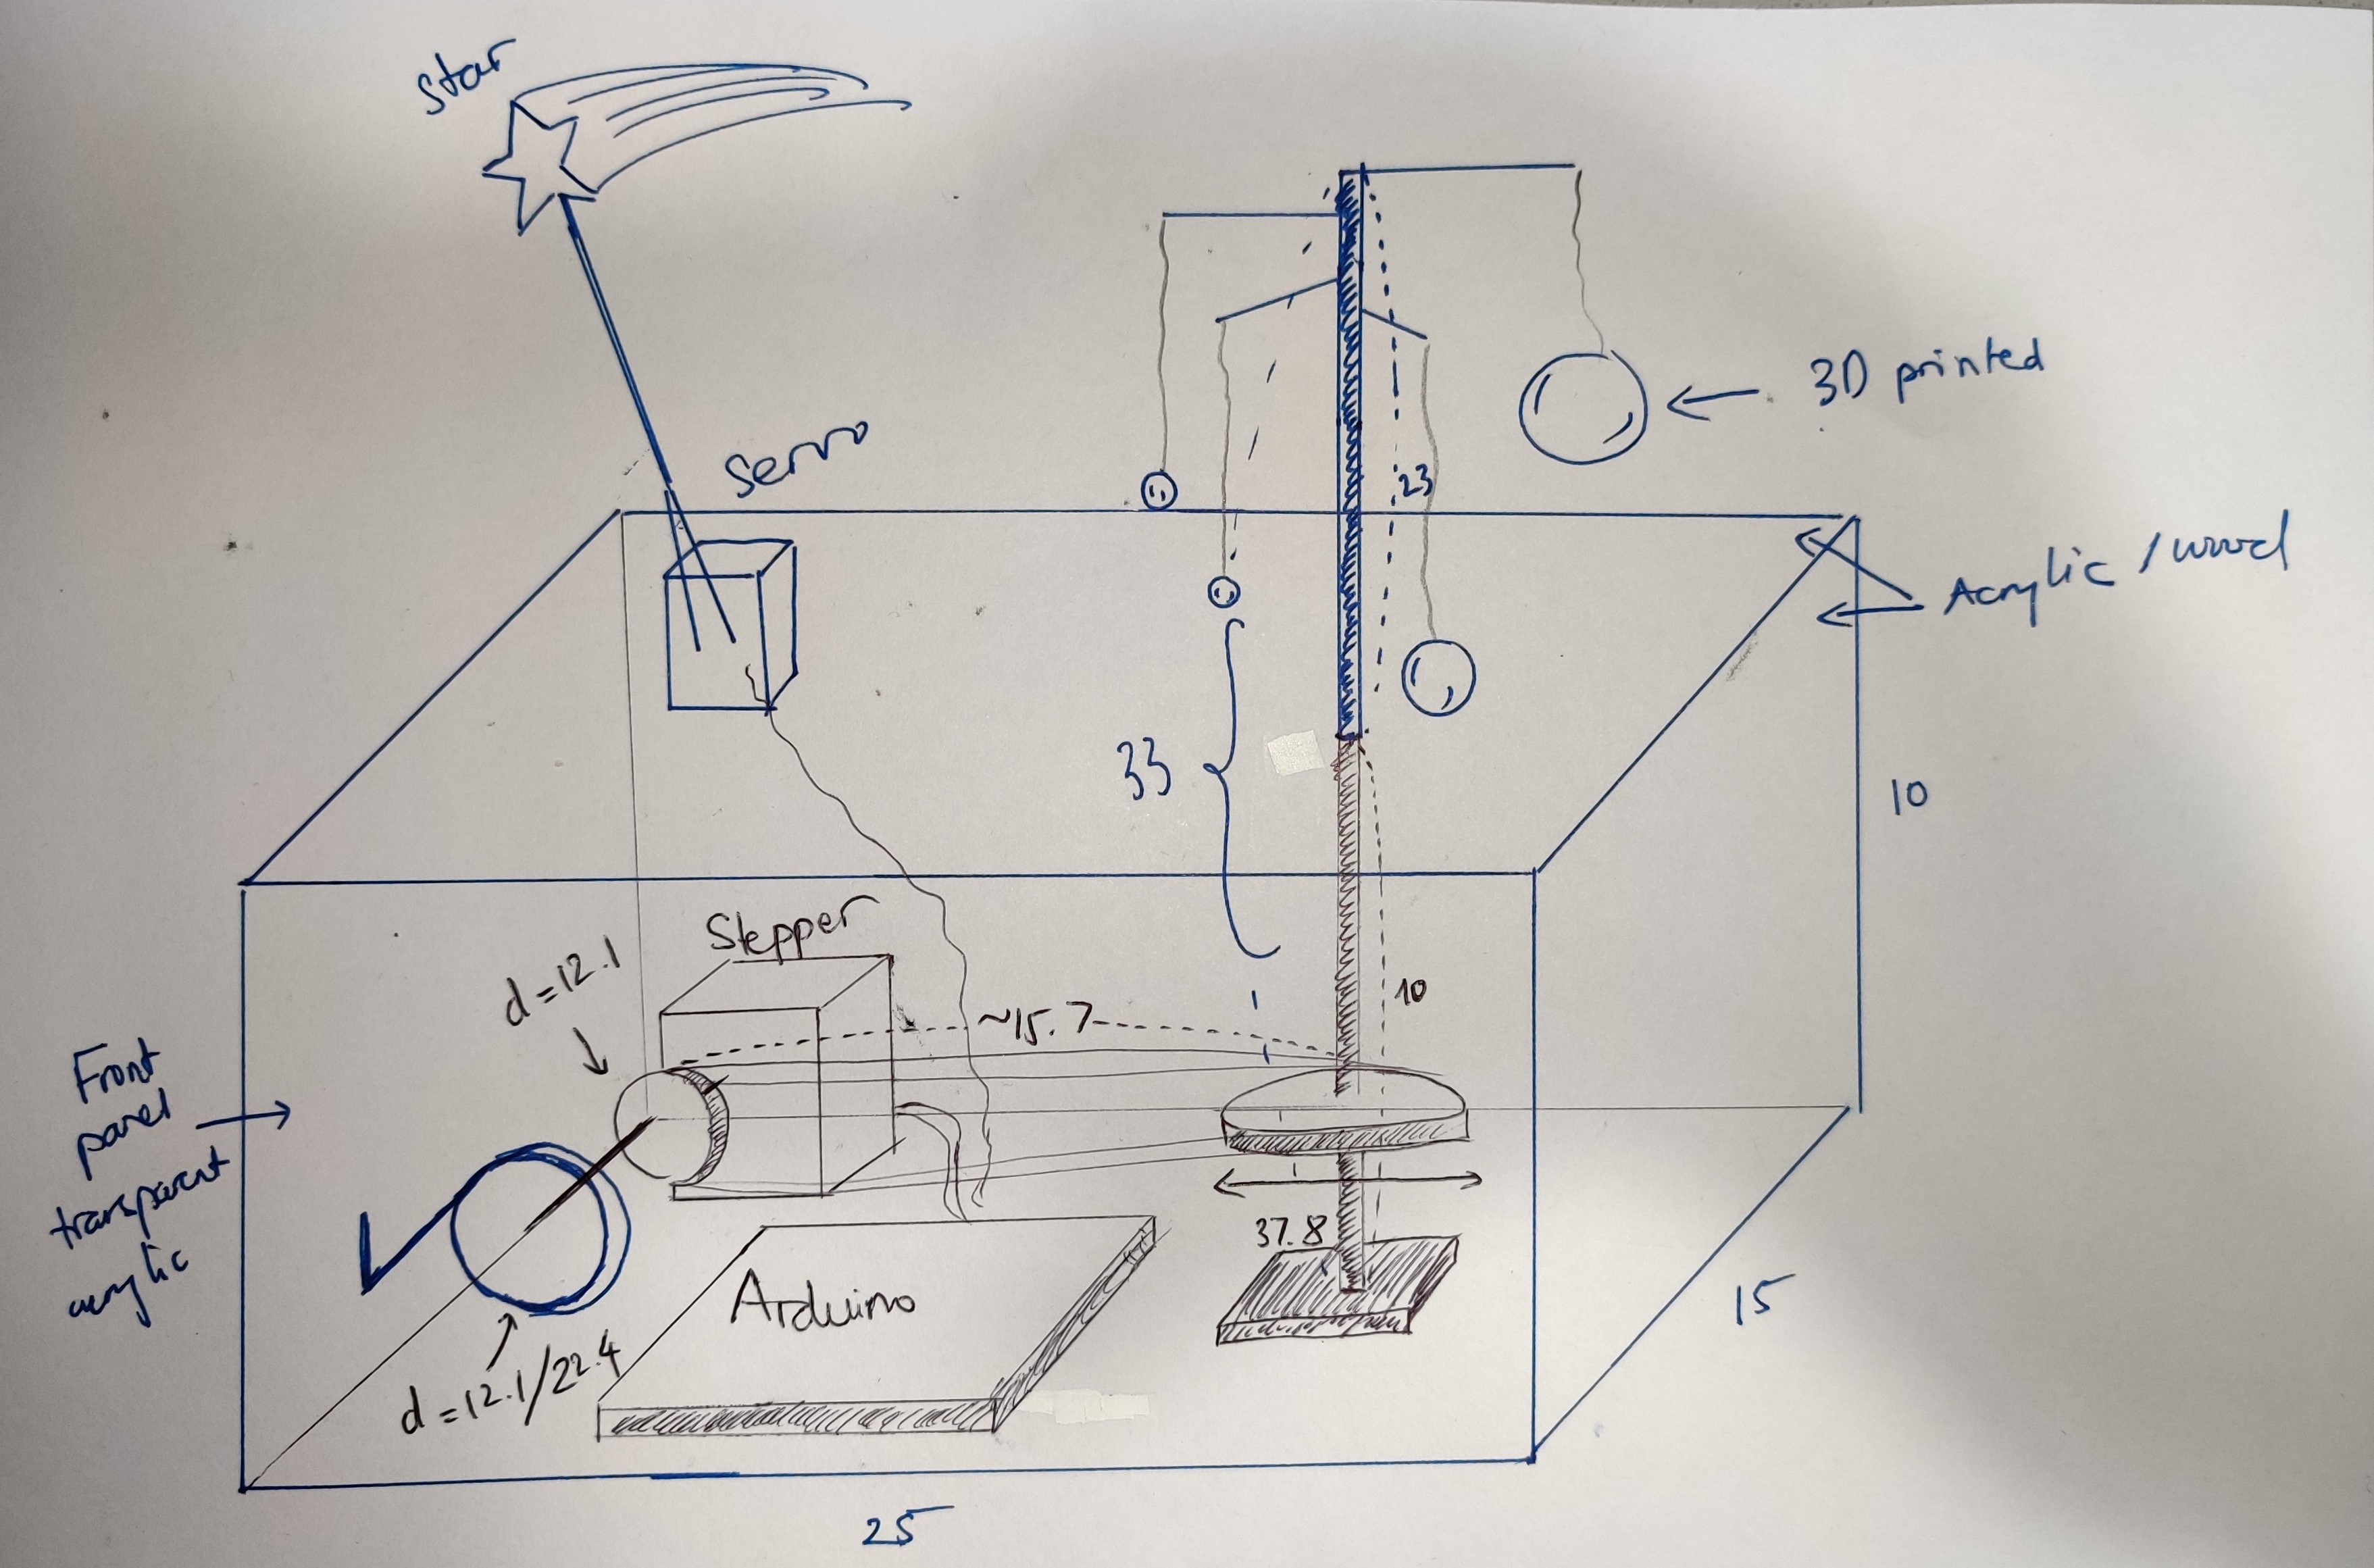 Star
Servo
3D printed
23
Acrylic / wood
33
10
Stepper
d=12.1
10
~15.7
Front
panel
transparent
acrylic
37.8
Arduino
15
d=12.1/22.4
25